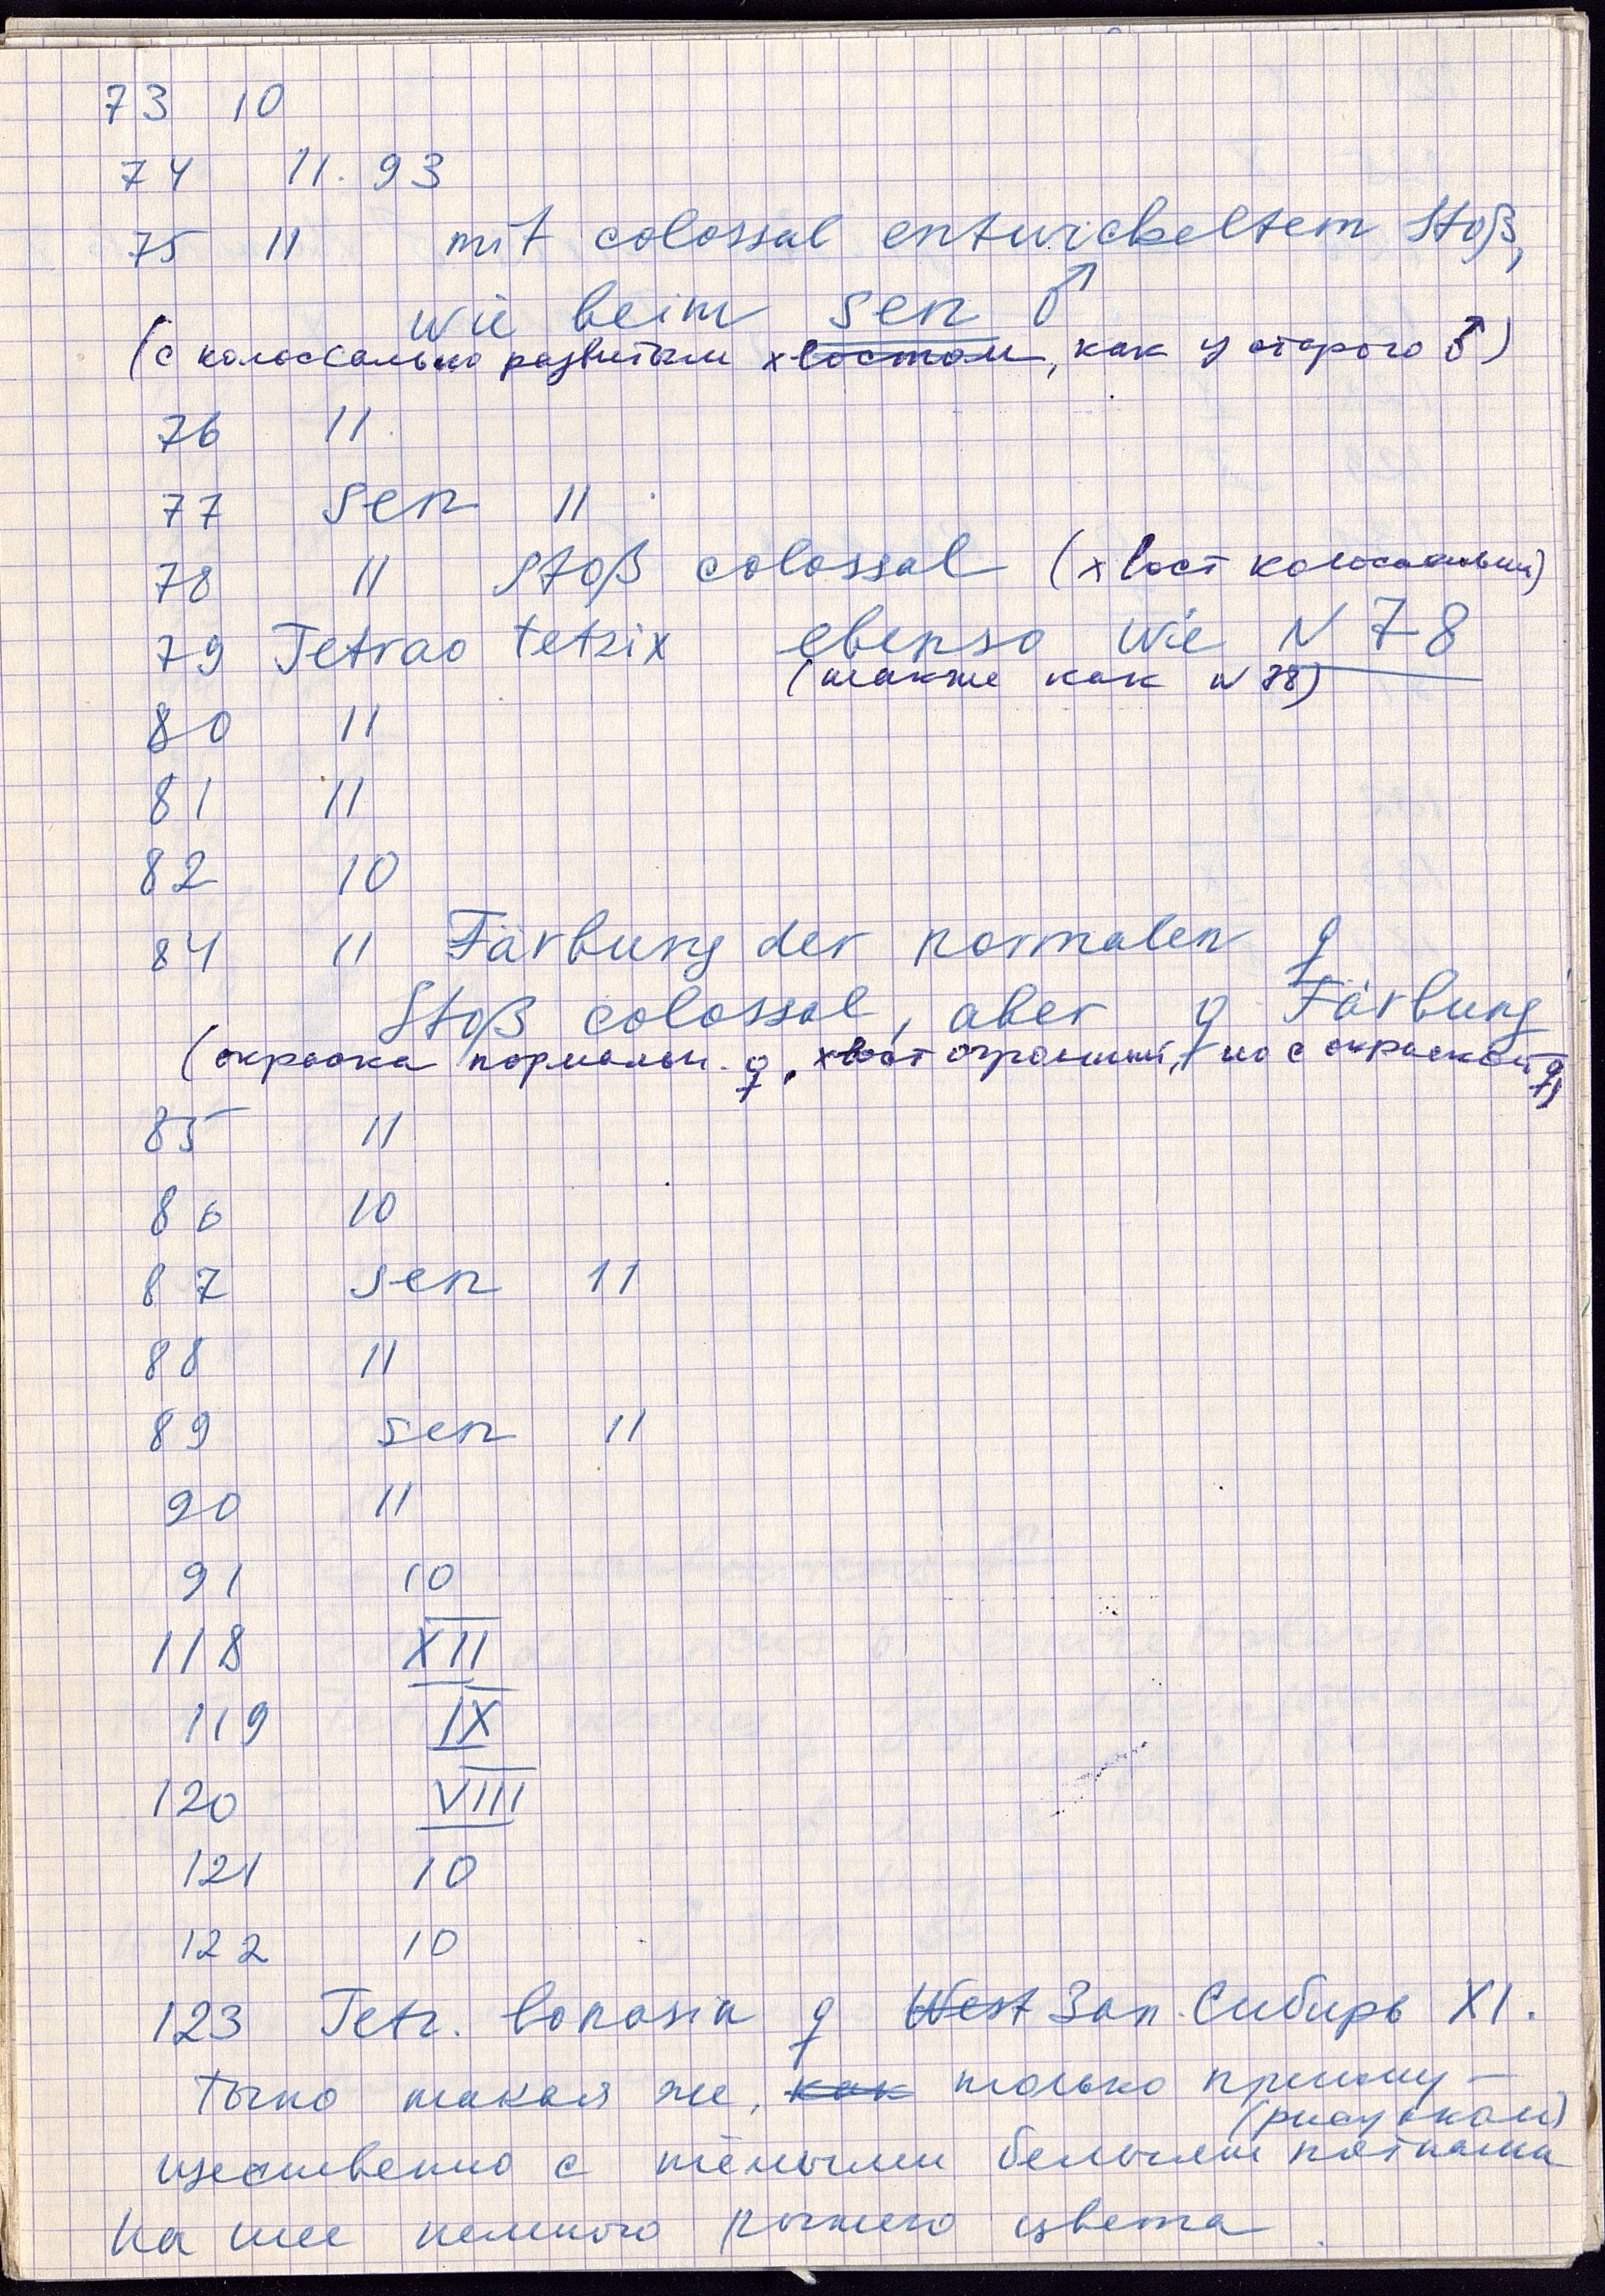 73 10
74 11. 93
75 11 mit colossal entwickeltem Stoß,
wie beim sen ♂
(с колоссально развитым хвостом, как у старого ♂)
76 11
77 sen 11
78 11 Stoß colossal (хвост колоссальный)
79 Tetrao tetrix ebenso wie N 78
(также как N 78)
80 11
81 11
82 10
84 11 Färbung der normalen ♀
Stoß colossal, aber ♀ Färbung
(окраска нормальн. ♀, хвост огромный, но с окраской ♀)
85 11
86 10
87 sen 11
88 11
89 sen 11
90 11
91 10
118 XII
119 IX
120 VIII
121 10
122 10
123 Tetr. bonasia ♀ West Зап. Сибирь XI.
Точно такая же, как только преиму-
(рисунком)
щественно с тёмными белыми пятнами
На шее немного рыжего цвета